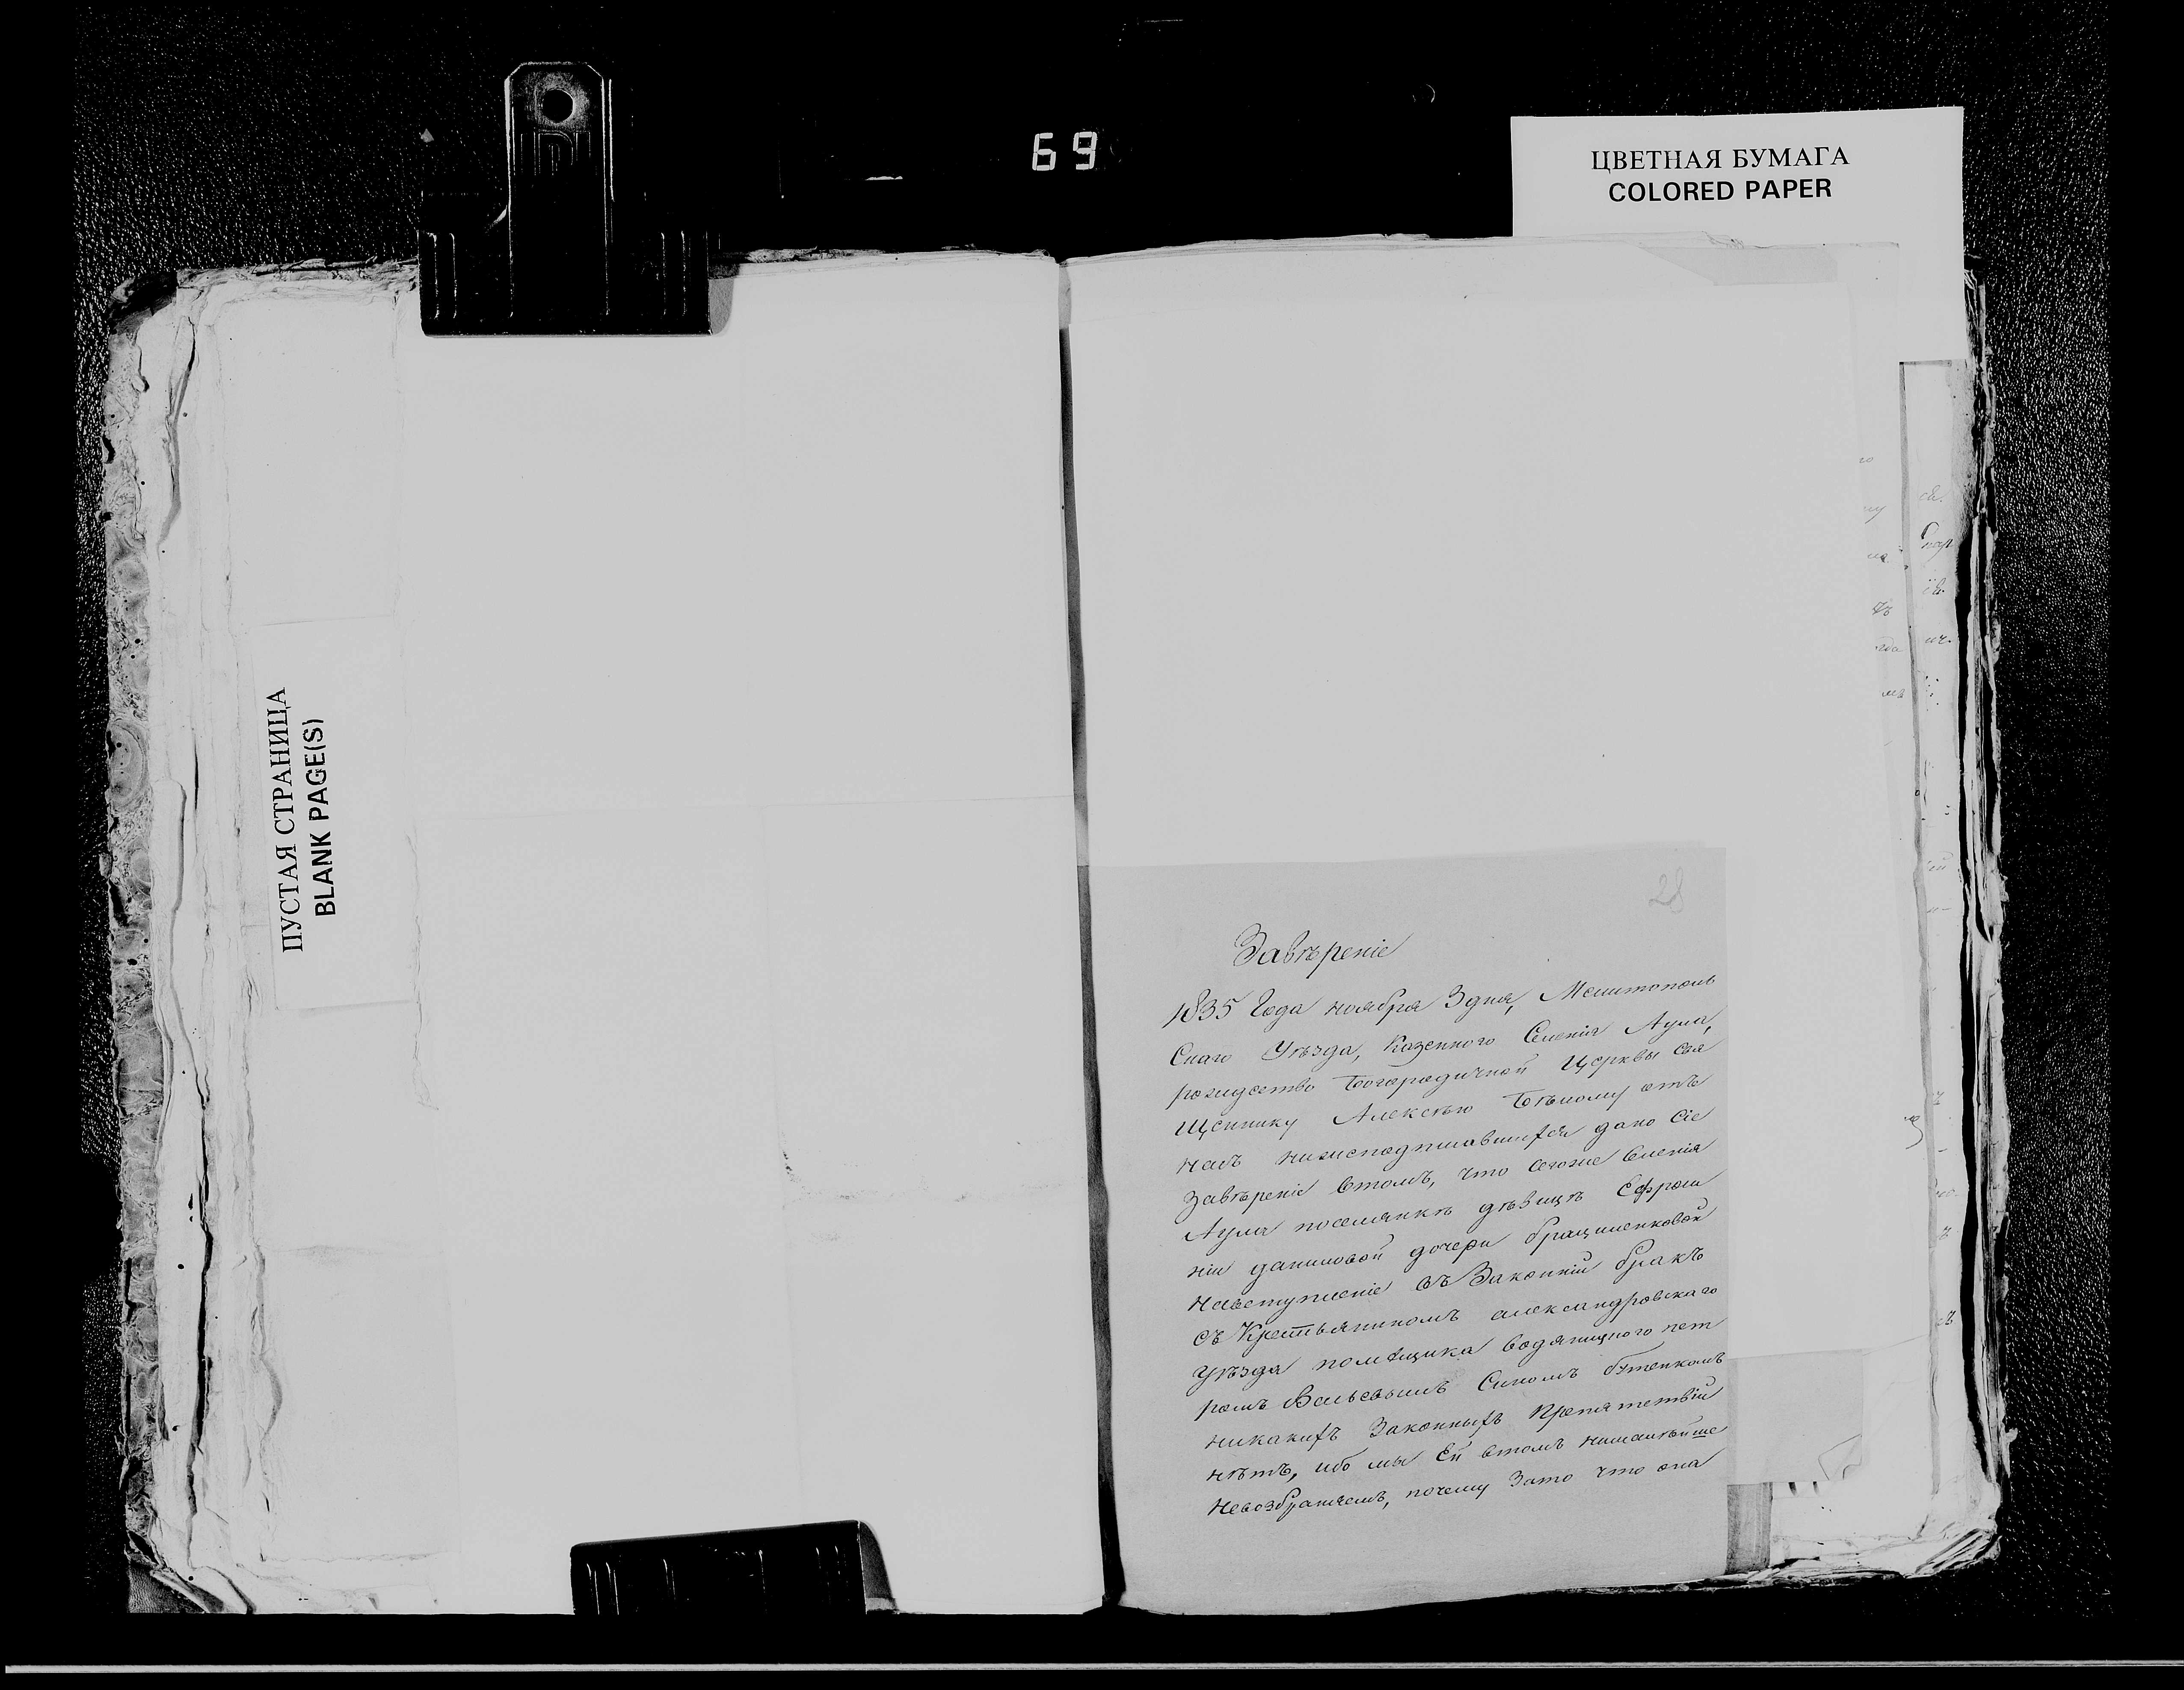 69
ЦВЕТНАЯ БУМАГА
COLORED PAPER
ПУСТАЯ СТРАНИЦА
BLANK PAGE(S)
28
Завѣреніе
1835 Года ноября 3 дня, Мелитополь
Скаго Уѣзда, Казенного Селенія Аула,
рождество Богородичной Церквы свя
щеннику Алексѣю Бѣлому отъ
насъ нижеподписавшихся дано сіе
завѣреніе втомъ, что сегоже Селенія
Аула поселянкѣ дѣвицѣ Ефроси
ніи даниловой дочери
Навступленіе въ Законній бракъ
съ Крестьяниномъ александровскаго
Уѣзда помѣщика Водяницкого пет
ромъ Сыномъ
никакихъ Законныхъ Препятствій
нѣтъ, ибо мы Ей втомъ нималѣйше
Невозбраняемъ, почему Зато что она